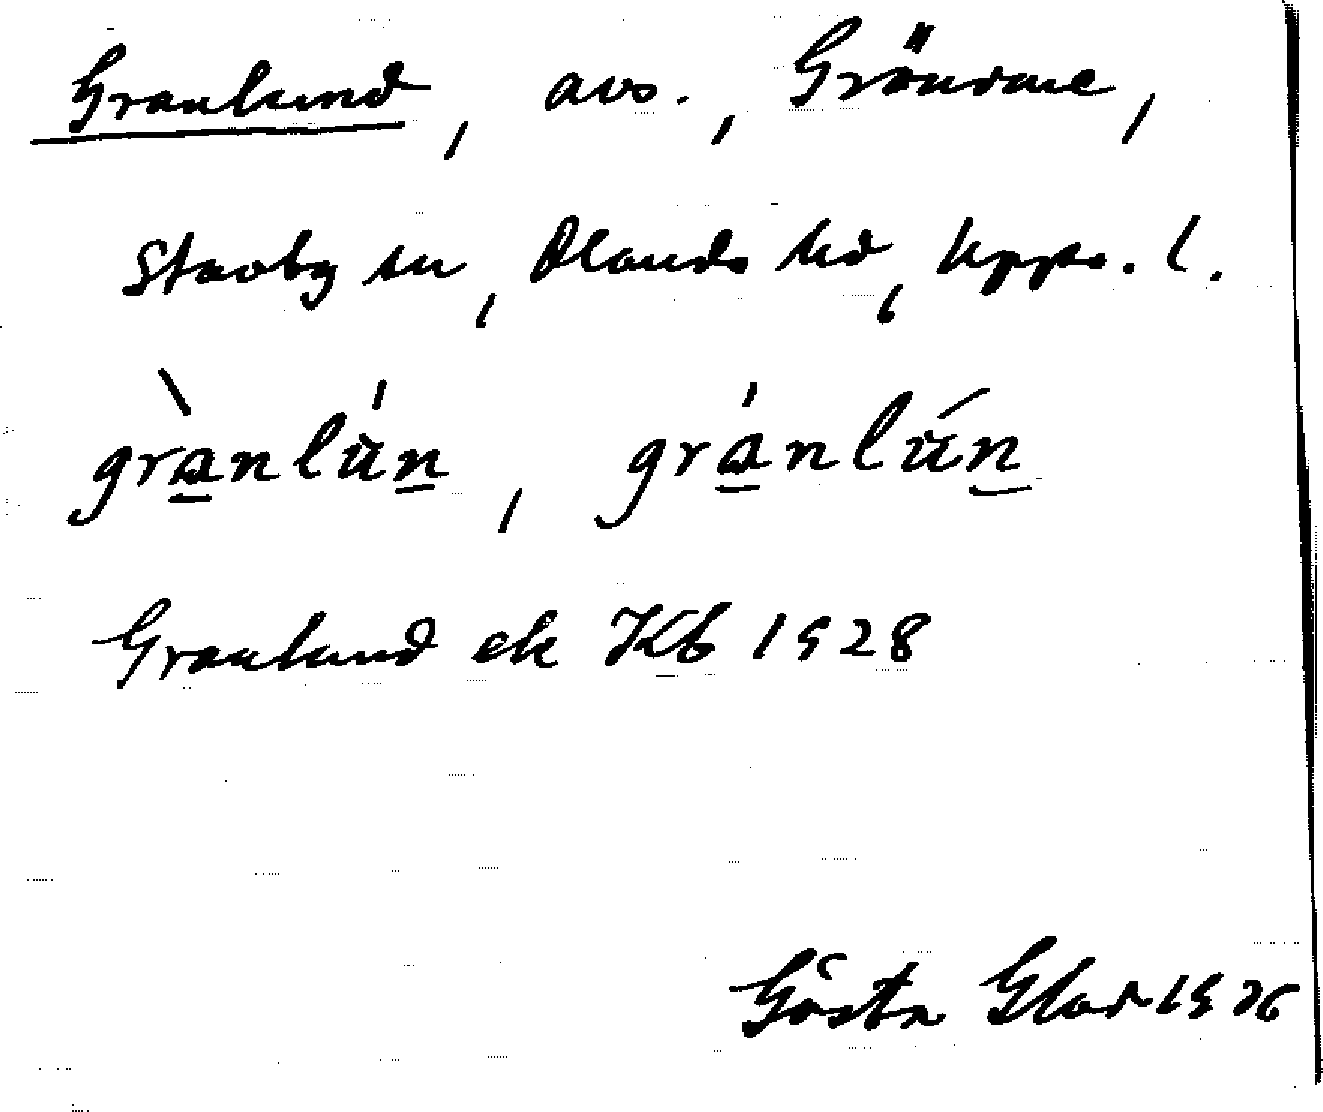 Granlund, avs., Gröndme,
Stavby sn, Olands hd, Upps. l.
grànlún, gránlún
Granlund ek Kb 1928
Gösta Glad 1936